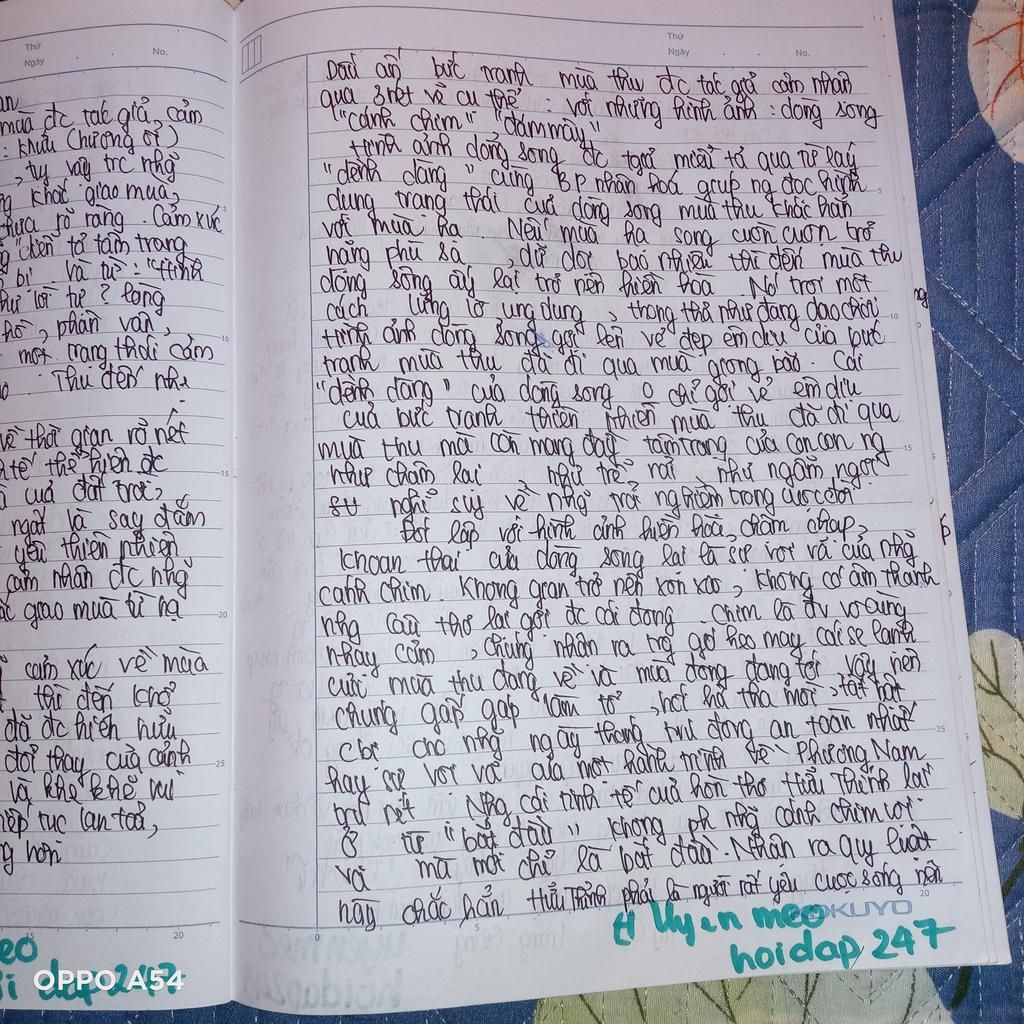 Thứ
Ngày
No.
an
mùa đc tác giả, cảm
: khứu (hương ổi)
, tuy vậy trc nhg
khắc giao mùa,
chưa rõ ràng. Cảm xúc
g "diễn tả tâm trạng
bi và từ: "hình
như lời tự ? lòng
hồ, phân vân,
một trạng thái cảm
Thu đến nhẹ
về thời gian rõ nét
tế thể hiện đc
của đất trời,
ngất là say đắm
yêu thiên nhiên
cảm nhận đc nhg
giao mùa từ hạ
cảm xúc về mùa
thì đến khổ
đã đc hiện hữu
đổi thay của cảnh
và khe khẽ
tiếp tục lan toả,
g hơn
20
OPPO A54
Thứ
Ngày
No.
Dấu ấn bức tranh mùa thu đc tác giả cảm nhận
qua 3 nét vẽ cụ thể : với những hình ảnh : dòng sông
"cánh chim" "đám mây"
Hình ảnh dòng sông đc tgiả miêu tả qua từ láy
"dềnh dàng" cùng BP nhân hoá giúp ng đọc hình
dung trạng thái của dòng sông mùa thu khác hẳn
với mùa hạ. Nếu mùa hạ sông cuồn cuộn trở
nặng phù sa , dữ dội bao nhiêu thì đến mùa thu
dòng sông ấy lại trở nên hiền hoà. Nó trôi một
cách lững lờ ung dung , thong thả như đang dạo chơi
Hình ảnh dòng sông gợi lên vẻ đẹp êm dịu của bức
tranh mùa thu đã đi qua mùa giông bão. Cái
"dềnh dàng" của dòng sông o chỉ gợi vẻ êm dịu
của bức tranh thiên nhiên mùa thu đã đi qua
mùa thu mà còn mang đầy tâm trạng của con ng
như chậm lại như trễ nải như ngẫm ngợi
nghĩ suy về nhg trải nghiệm trong cuộc đời
Đối lập với hình ảnh hiền hoà, chậm chạp,
khoan thai của dòng sông lại là sự vội vã của nhg
cánh chim Không gian trở nên xôn xao, không có âm thanh
nhg câu thơ lại gợi đc cái động chim là đv vô cùng
nhạy cảm , chúng nhận ra trg gió heo may cái se lạnh
cuối mùa thu đang về và mùa đông đang tới vậy nên
chúng gấp gáp làm tổ , hối hả tha mồi, tất bật
cbị cho nhg ngày tháng trú đông an toàn nhất
hay sự vội vã của một hành trình về Phương Nam
trở rét . Nhg cái tinh tế của hồn thơ Hữu Thỉnh lại
ở từ "bắt đầu" không ph nhg cánh chim vội
vã mà mới chỉ là bắt đầu. Nhận ra quy luật
này chắc hẳn Hữu Thỉnh phải là người rất yêu cuộc sống nên
KOKUYO
# Uyên meo
hoidap 247